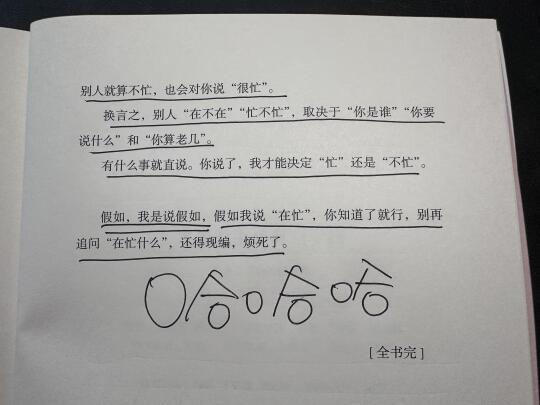 别人就算不忙，也会对你说“很忙”。
换言之，别人“在不在”“忙不忙”，取决于“你是谁”“你要
说什么”和“你算老几”。
有什么事就直说。你说了，我才能决定“忙”还是“不忙”。
假如，我是说假如，假如我说“在忙”，你知道了就行，别再
追问“在忙什么”，还得现编，烦死了。
哈哈哈
［全书完］